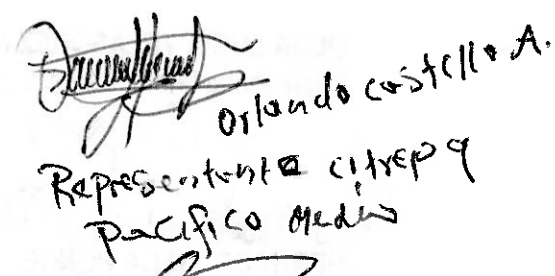 Orlando castillo A.
Representante citrep 9
Pacifico medio